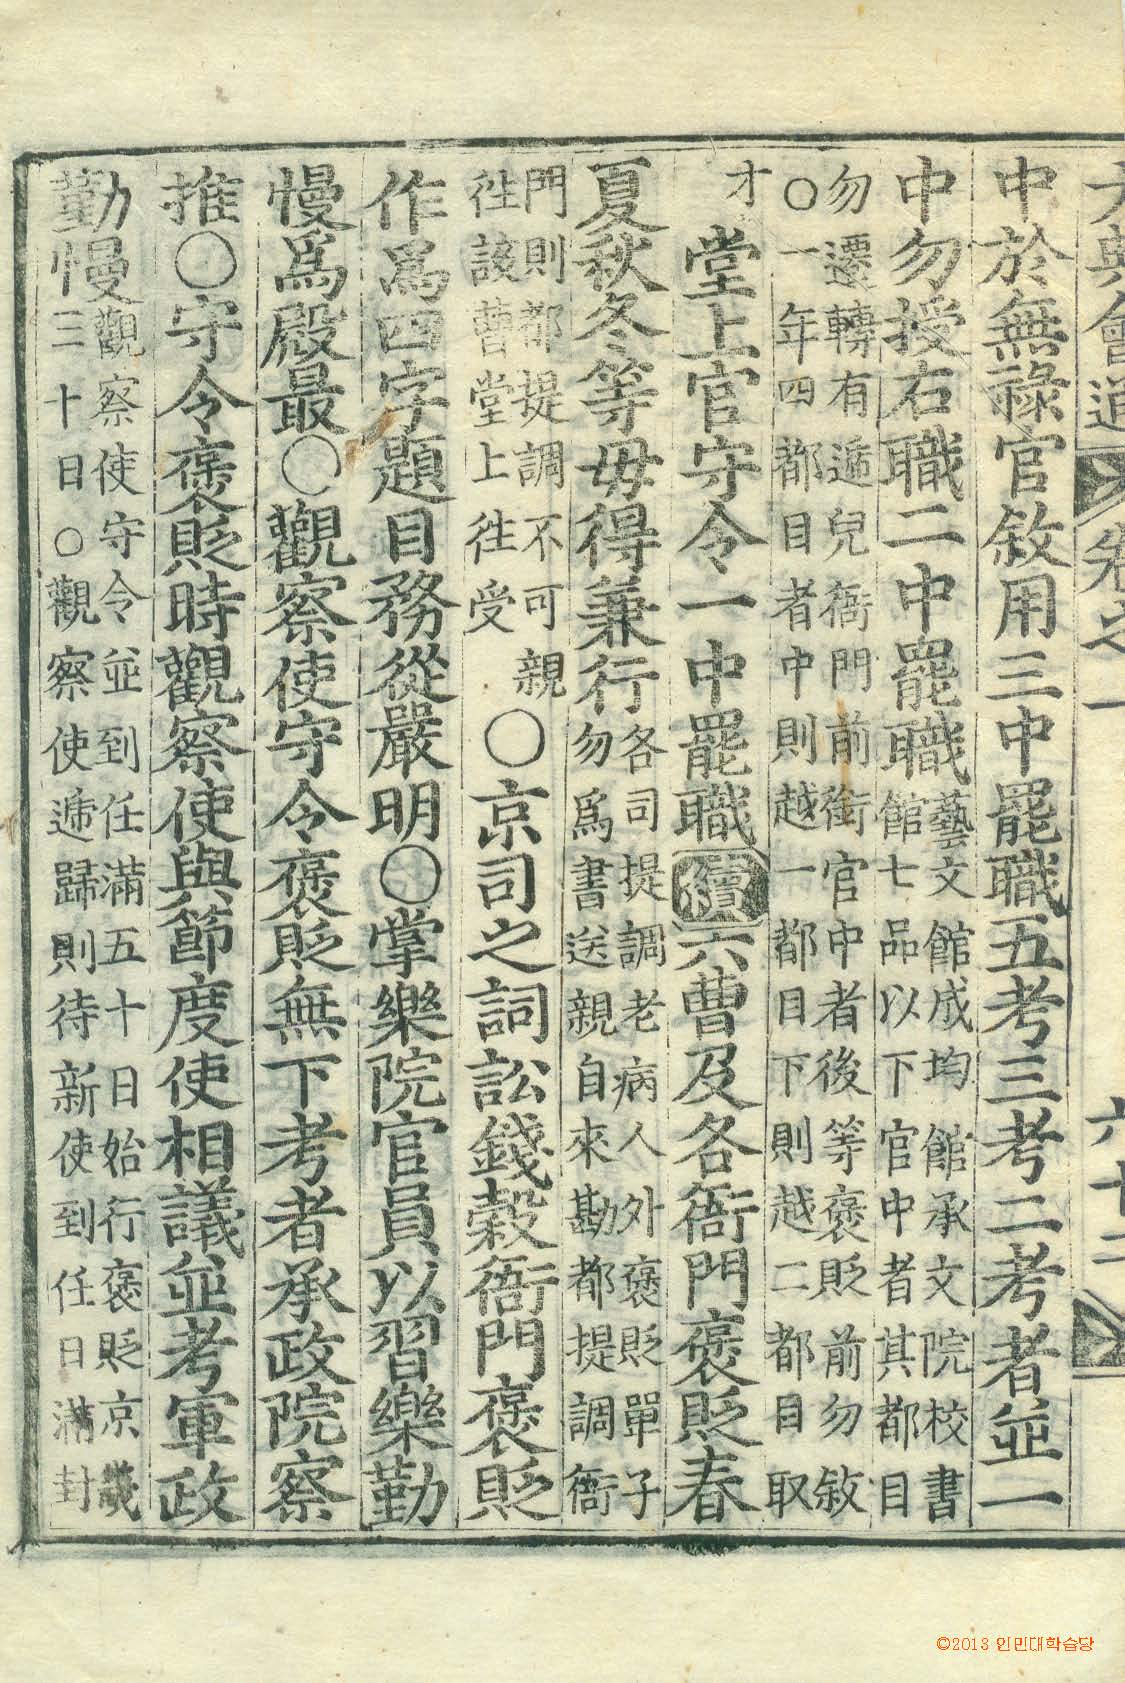 大典會通 卷之一 六十三
中於無祿官敘用三中罷職五考三考二考者並一
中勿授右職二中罷職
藝文館成均館承文院校書
館七品以下官中者其都目
勿遷轉有遞兒衙門前銜官中者後等褒貶前勿敘
○一年四都目者中則越一都目下則越二都目取
才
堂上官守令一中罷職續六曹及各衙門褒貶春
夏秋冬等毋得兼行
各司提調老病人外褒貶單子
勿爲書送親自來勘都提調衙
門則都提調不可親
往該曹堂上往受
○京司之詞訟錢穀衙門褒貶
作爲四字題目務從嚴明○掌樂院官員以習樂勤
慢爲殿最○觀察使守令褒貶無下考者承政院察
推○守令褒貶時觀察使與節度使相議並考軍政
勤慢
觀察使守令並到任滿五十日始行褒貶京畿
三十日○觀察使遞歸則待新使到任日滿封
©2013 인민대학습당